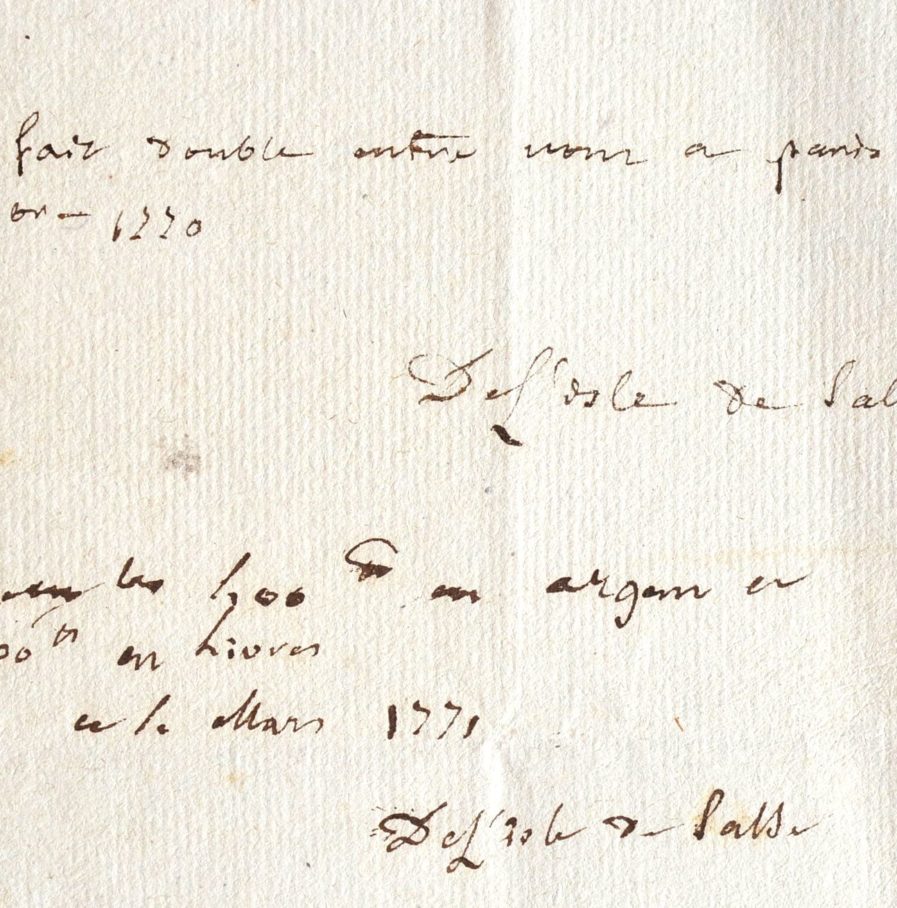 fait double entre nous a paris
bre 1770
De L'isle de Sal
les 500 tt en argent et
00 tt en livres
ce 1e Mars 1771
De L'isle de Salle